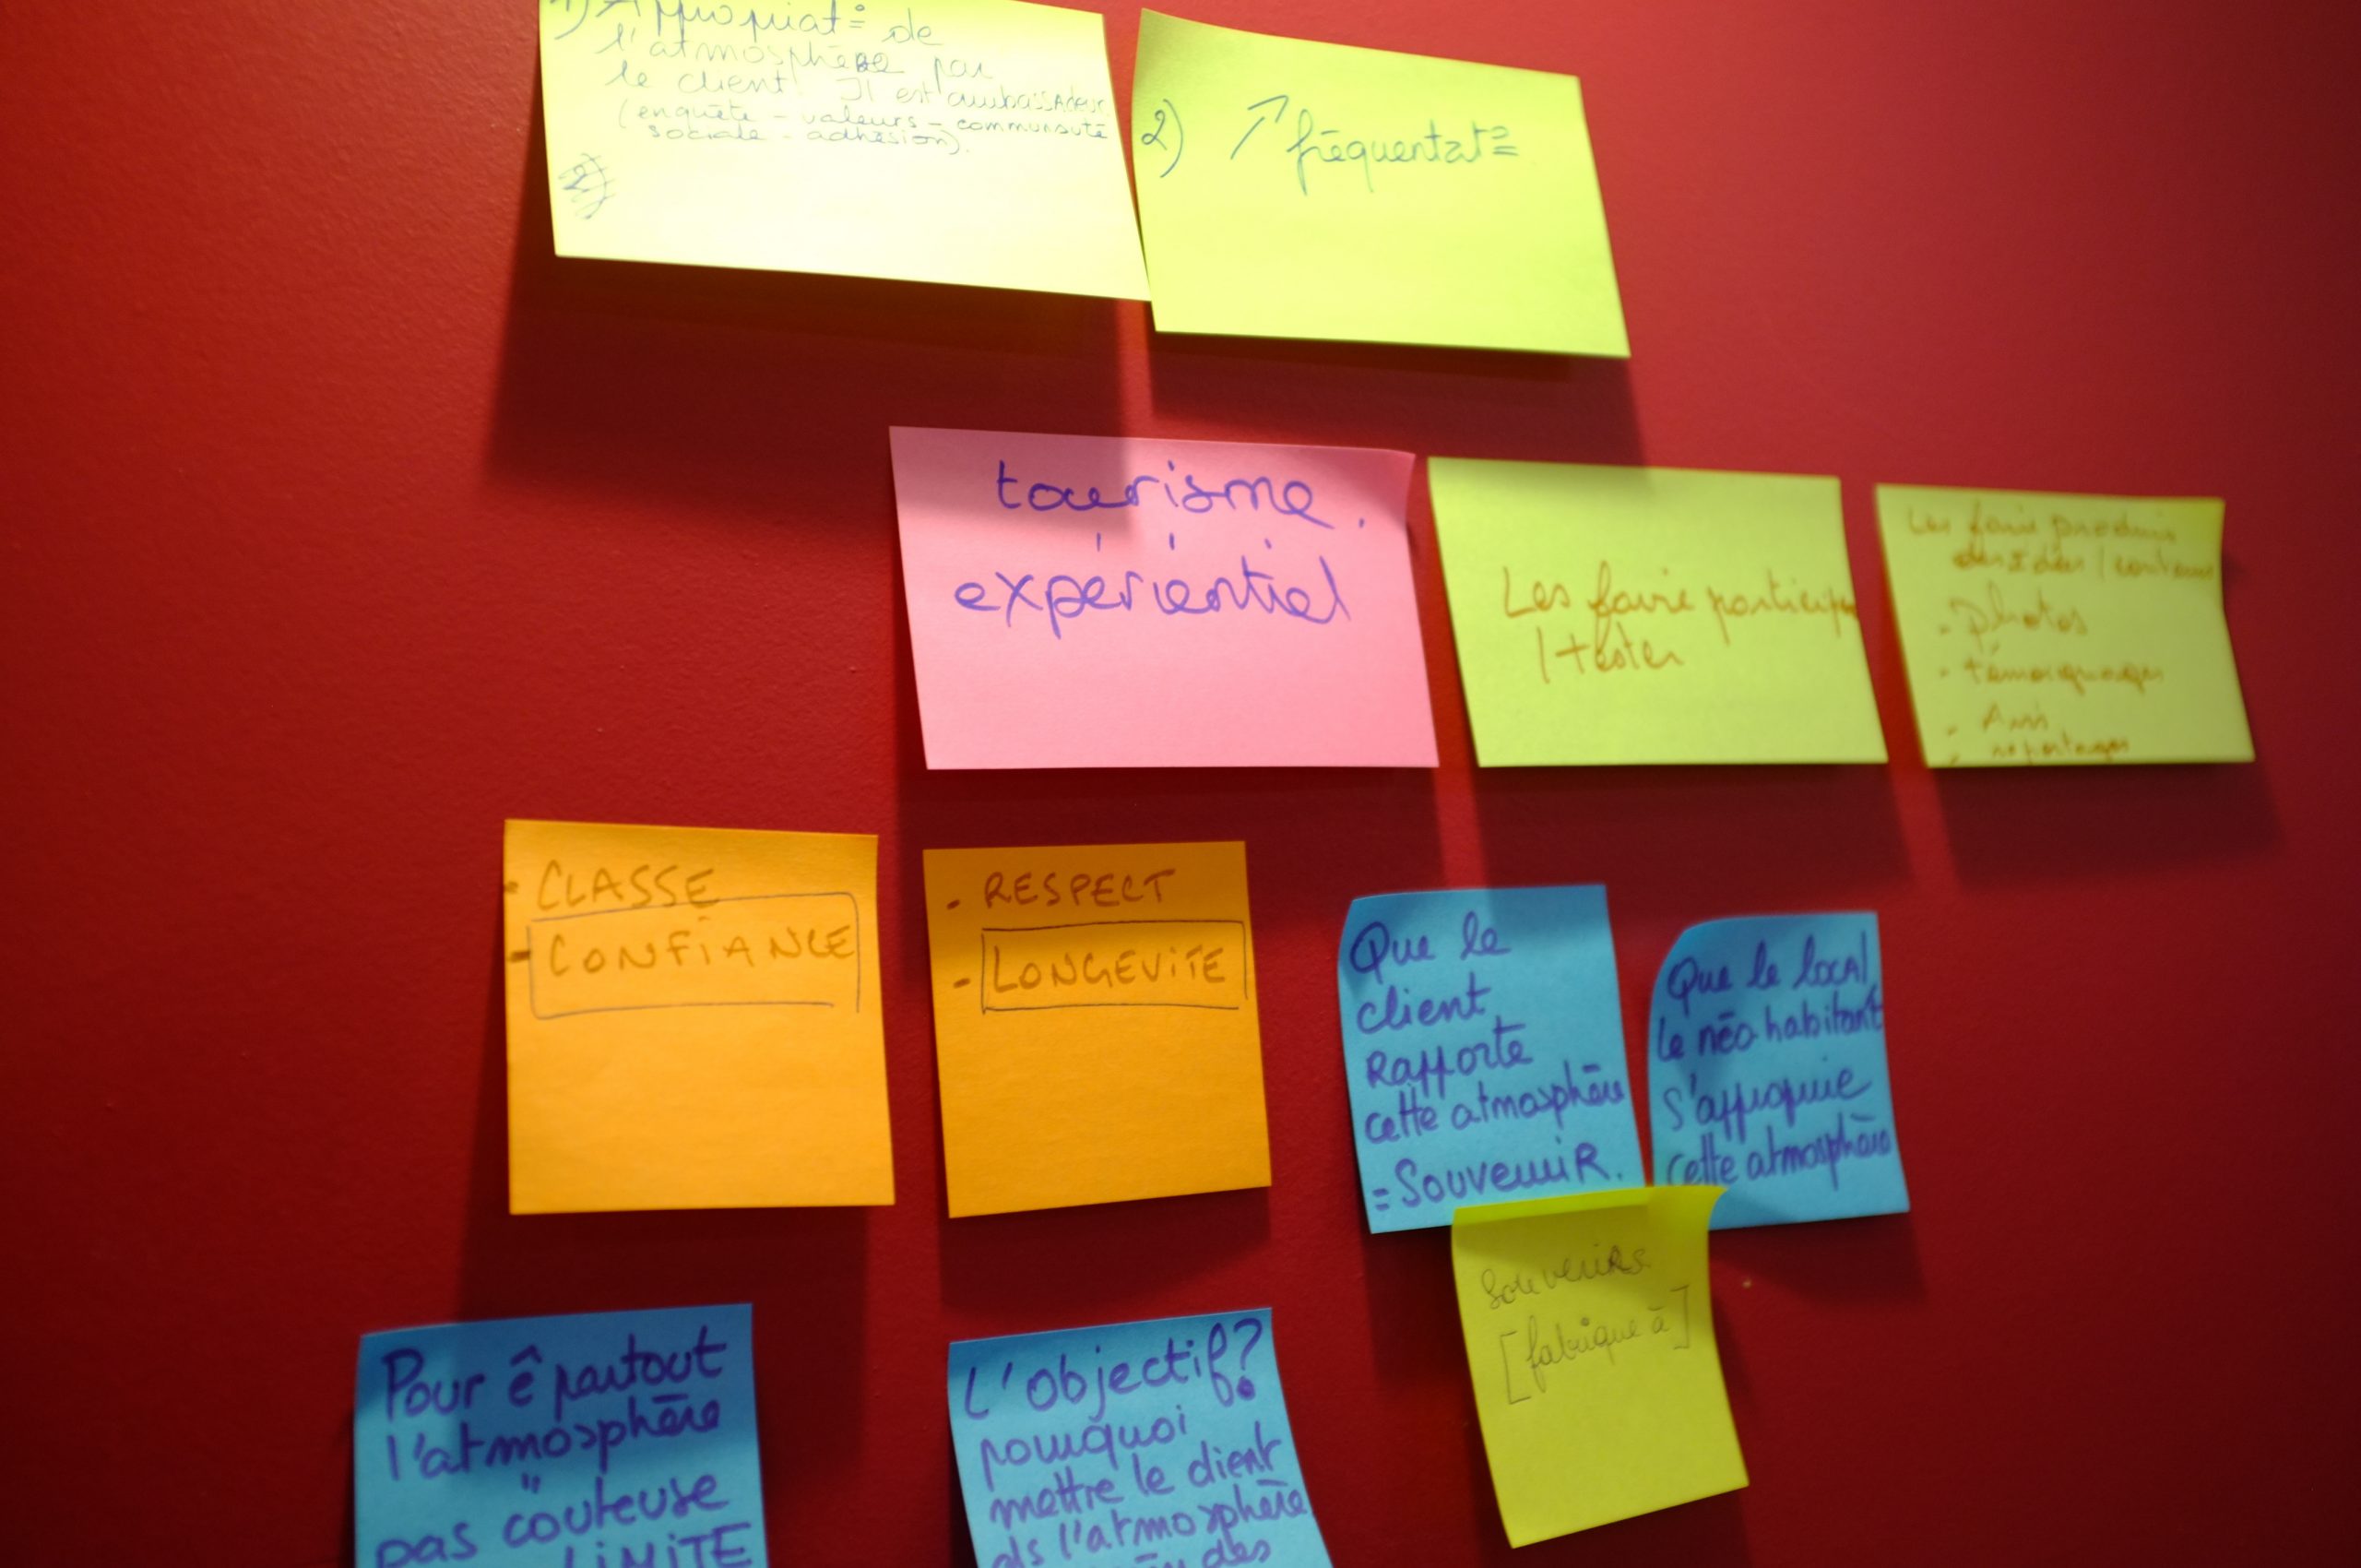 1) Appropriat° de
l'atmosphère par
le client. Il est ambassadeur
(enquête - valeurs - communauté
sociale - adhésion).
2) ↗ fréquentat°
tourisme
expérientiel
Les faire participer
/ tester
Les faire produire
des idées / contenus
- photos
- témoignages
- Avis
- reportages
- CLASSE
- CONFIANCE
- RESPECT
- LONGEVITE
Que le
client
Rapporte
cette atmosphère
= SouveniR.
Que le local
le néo habitant
s'approprie
cette atmosphère
Souvenirs
[fabriqué à]
Pour ê partout
l'atmosphère
pas couteuse
LIMITE
L'objectif?
pourquoi
mettre le client
ds l'atmosphère
des